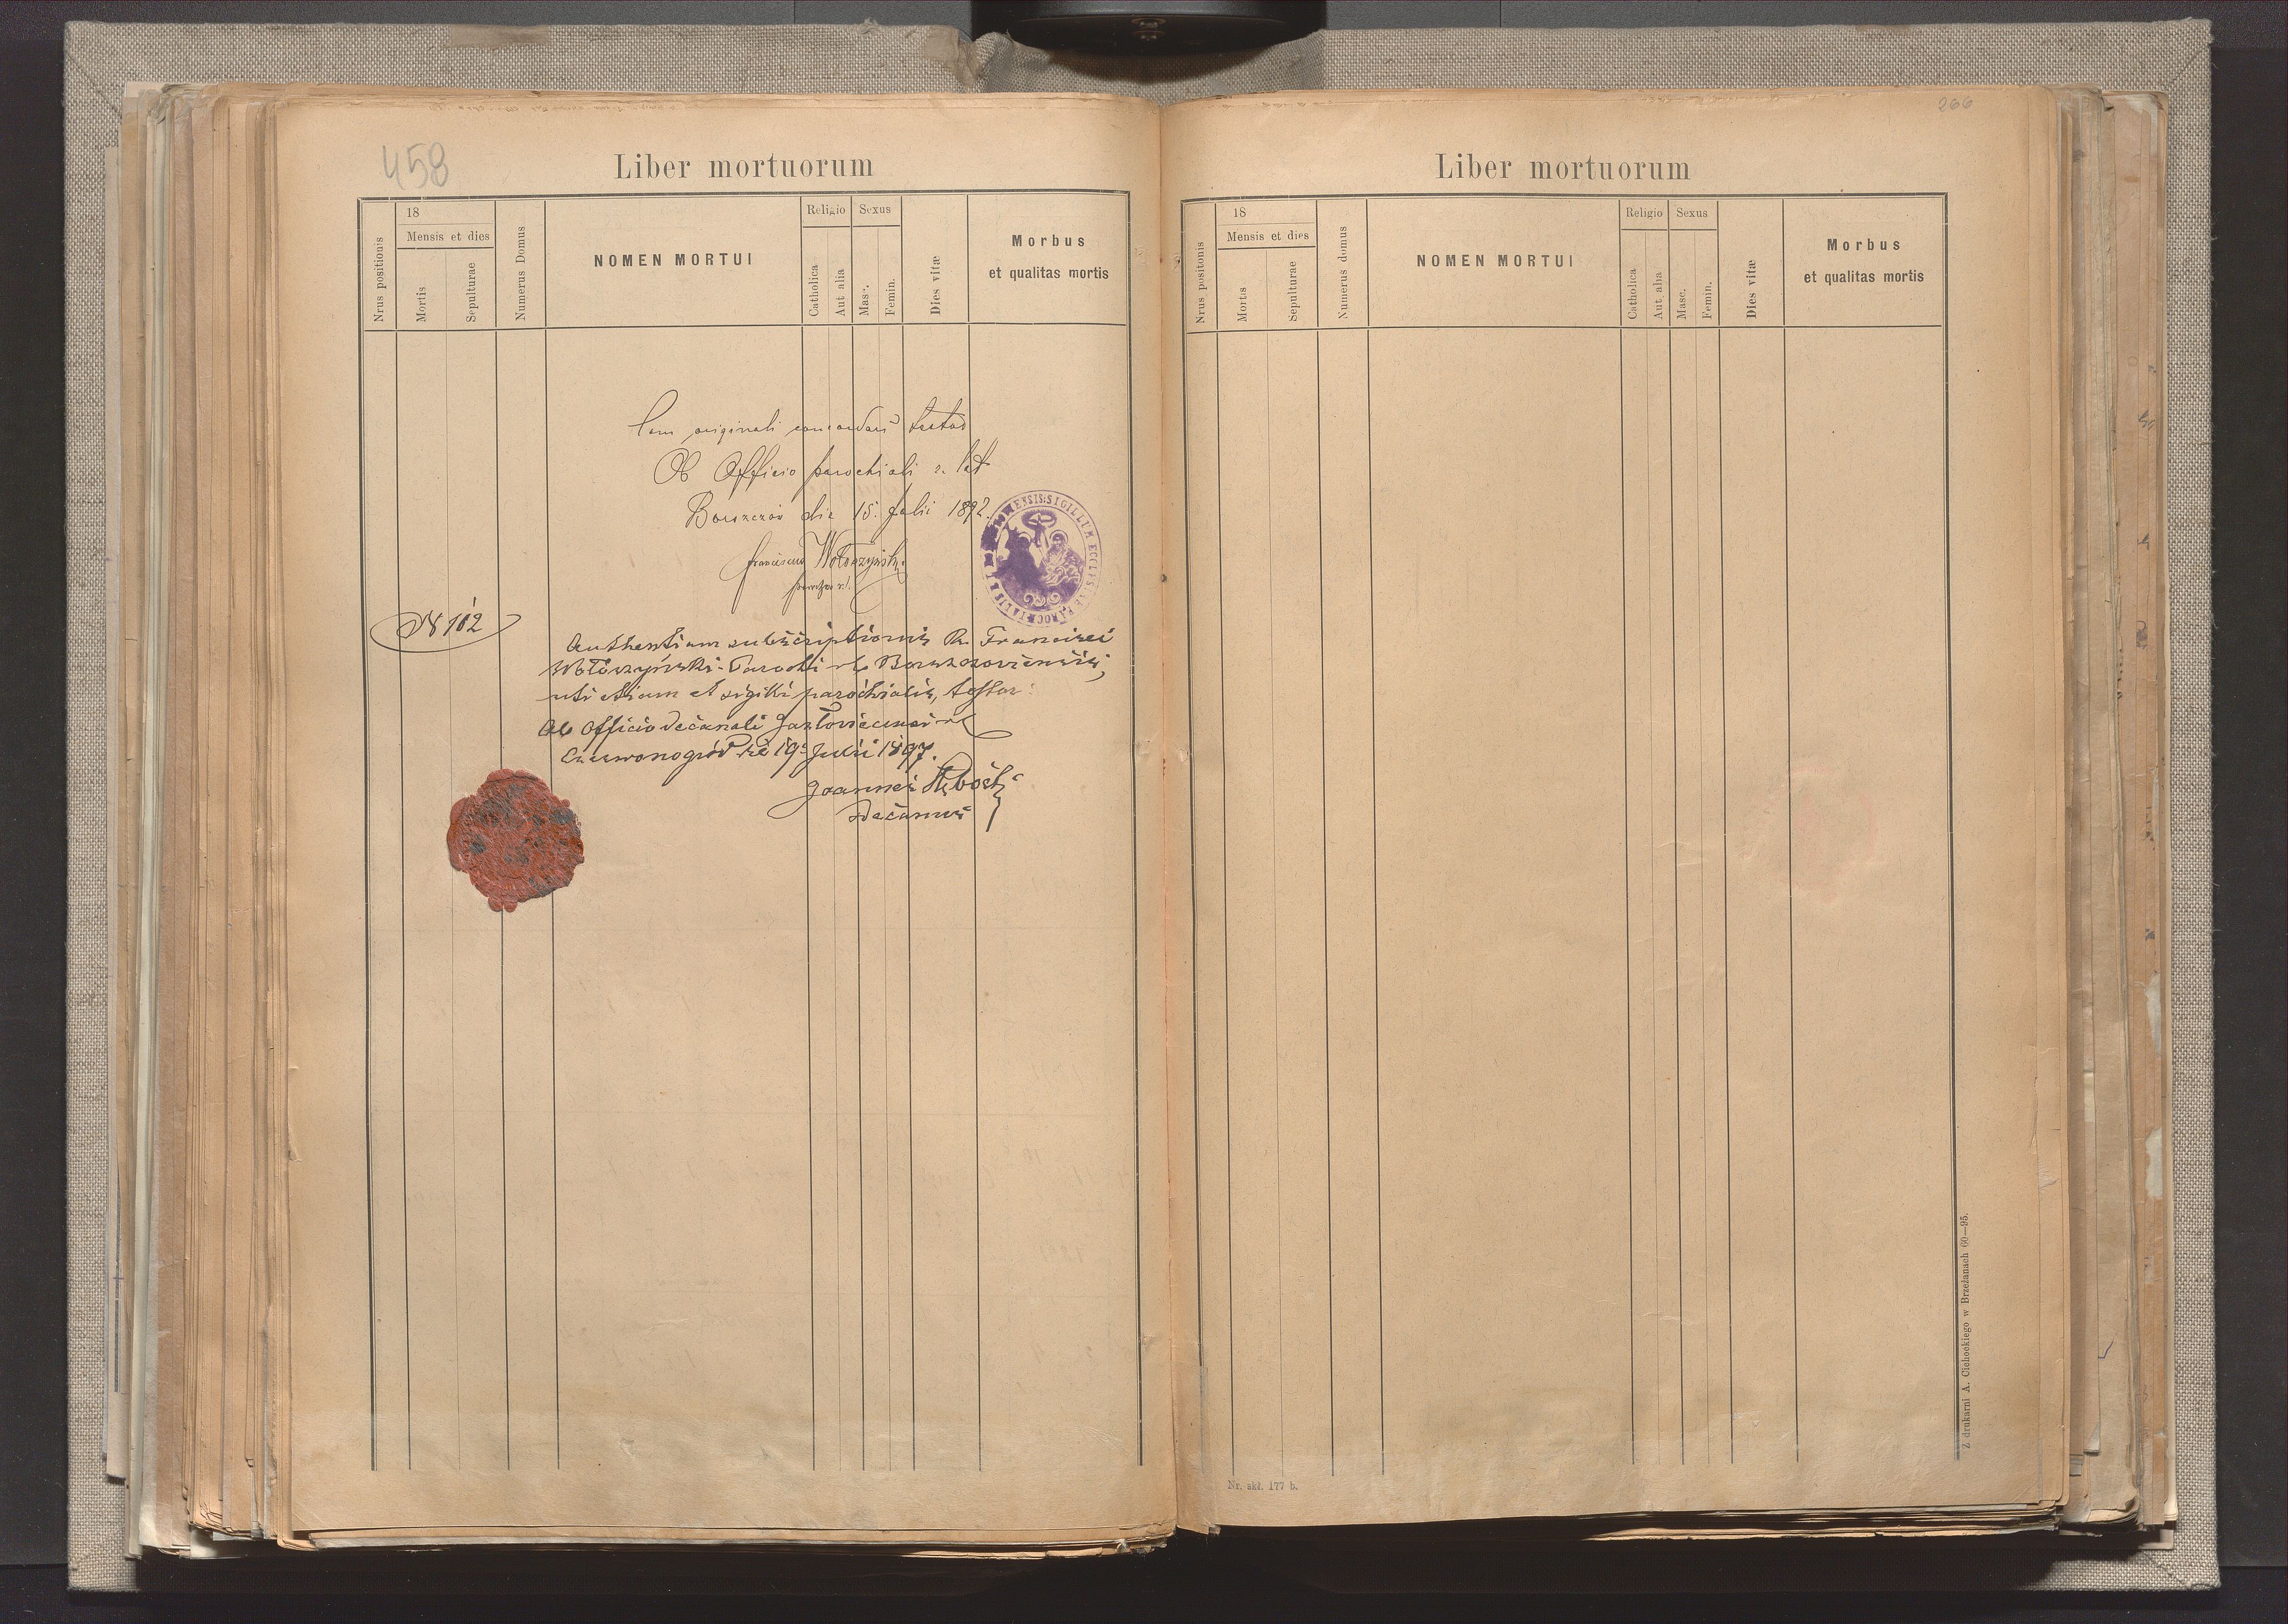 458
Liber mortuorum
Nrus positionis
18
Mensis et dies
Mortis
Sepulturae
Numerus Domus
NOMEN MORTUI
Religio
Catholica
Aut alia
Sexus
Masc.
Femin.
Dies vitæ
Morbus
et qualitas mortis
Cum originali concordari testor
Ab Officio parochiali r. lat
Borszczów die 15. Julii 1897.
Franciscus Wołoszyński
parochus r.l.
ENSIS SIGILLUM ECCLESIAE PAROCHIALIS
N 102
Authentiam subscriptionis R. Francisci
Wołoszyński Parochi r.l. Borszczoviensis,
uti etiam et sigilli parochialis, testor:
Ab Officio Decanali Jazłoviecensi r.l.
Czerwonogród die 19. Julii 1897.
Joannes
Decanus
266
Liber mortuorum
Nrus positonis
18
Mensis et dies
Mortis
Sepulturae
Numerus domus
NOMEN MORTUI
Religio
Catholica
Aut alia
Sexus
Masc.
Femin.
Dies vitæ
Morbus
et qualitas mortis
Z drukarni A. Cichockiego w Brzeżanach 60—95.
Nr. skł. 177 b.